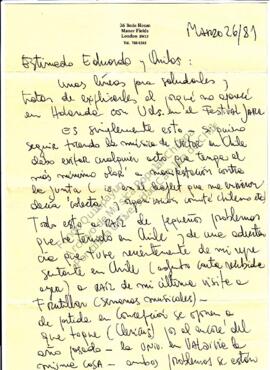 35 Seán House
Manor Fields
London SW15
Tel. 788
Marzo 26/81
Estimado Eduardo y Quilas:
Unas líneas para saludarles y
tratar de explicarles el porqué no aparecí
en Holanda con Uds. en el Festival Jara
Es simplemente esto — si quiero
seguir tocando la música de Víctor en Chile
debo evitar cualquier acto que tenga el
más mínimo olor a manifestación contra
la Junta (
decía "colecta" organización comité chileno de
Todo esto a raíz de pequeños problemas
que he tenido en Chile — de una adverten
cia que tuve recientemente de mi repre
sentante en Chile (adjunto carta recibida
ayer) a raíz de mi última visita a
Frutillar (semanas musicales) —
de partida en Concepción se oponen a
que toque (clásicas) por el
año pasado — la Univ. en Valdivia la
misma cosa — ambos problemas se están